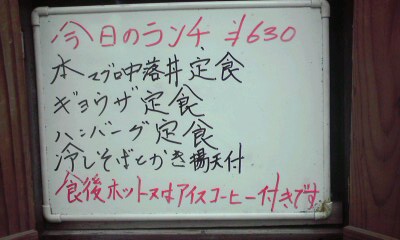 今日のランチ ¥630
本マグロ中落丼定食
ギョウザ定食
ハンバーグ定食
冷しそばとかき揚天付
食後ホット又はアイスコーヒー付きです